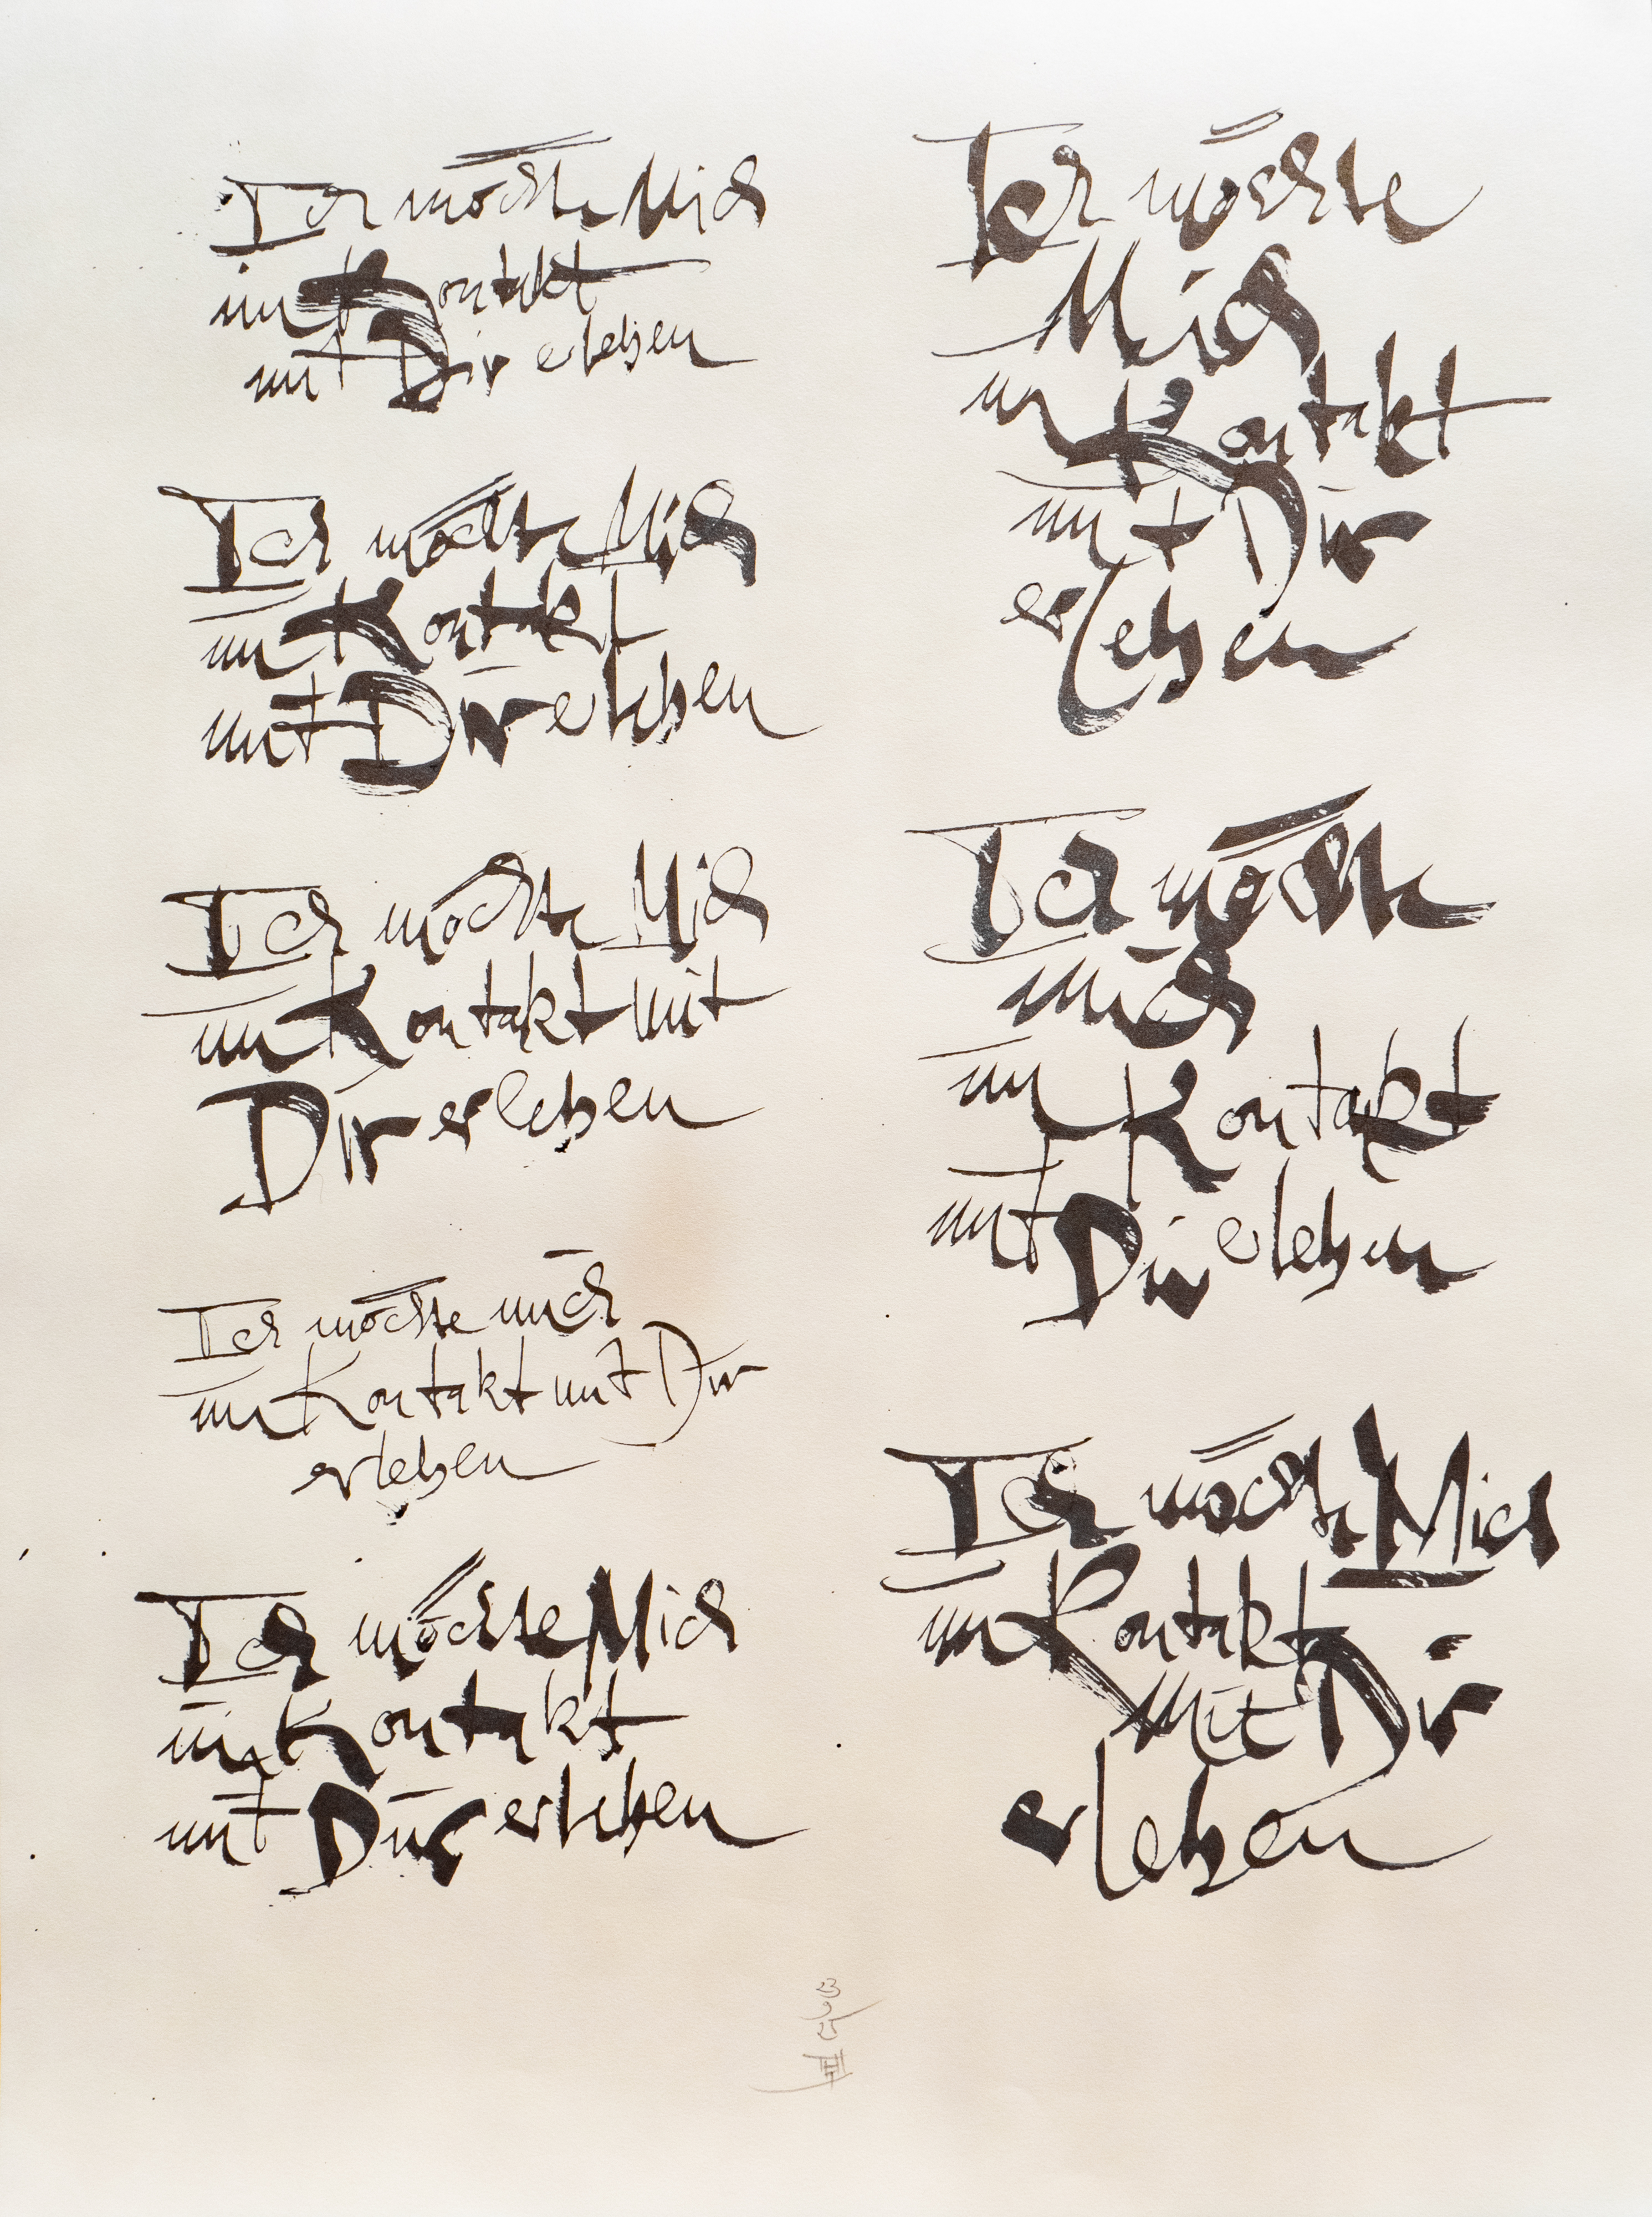 Ich möchte Mich
im Kontakt
mit Dir erleben
Ich möchte Mich
im Kontakt
mit Dir erleben
Ich möchte Mich
im Kontakt mit
Dir erleben
Ich möchte mich
im Kontakt mit Dir
erleben
Ich möchte Mich
im Kontakt
mit Dir erleben
Ich möchte
Mich
im Kontakt
mit Dir
erleben
Ich möchte
mich
im Kontakt
mit Dir erleben
Ich möchte Mich
im Kontakt
mit Dir
erleben